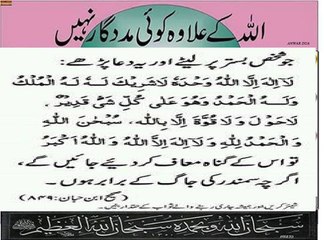 اللہ کے علاوہ کوئی مددگار نہیں
جو شخص بستر پر لیٹے اور یہ دعا پڑھے:
لَا اِلٰهَ اِلَّا اللهُ وَحْدَهٗ لَا شَرِيْكَ لَهٗ لَهُ الْمُلْكُ
وَلَهُ الْحَمْدُ وَهُوَ عَلٰى كُلِّ شَيْءٍ قَدِيْرٌ،
لَا حَوْلَ وَلَا قُوَّةَ اِلَّا بِاللهِ، سُبْحَانَ اللهِ
وَالْحَمْدُ لِلّٰهِ وَلَا اِلٰهَ اِلَّا اللهُ وَاللهُ اَكْبَرُ
تو اس کے گناہ معاف کر دیے جائیں گے،
اگرچہ سمندر کی جھاگ کے برابر ہوں۔ (صحیح ابن حبان)
سبحان الله وبحمده سبحان الله العظيم